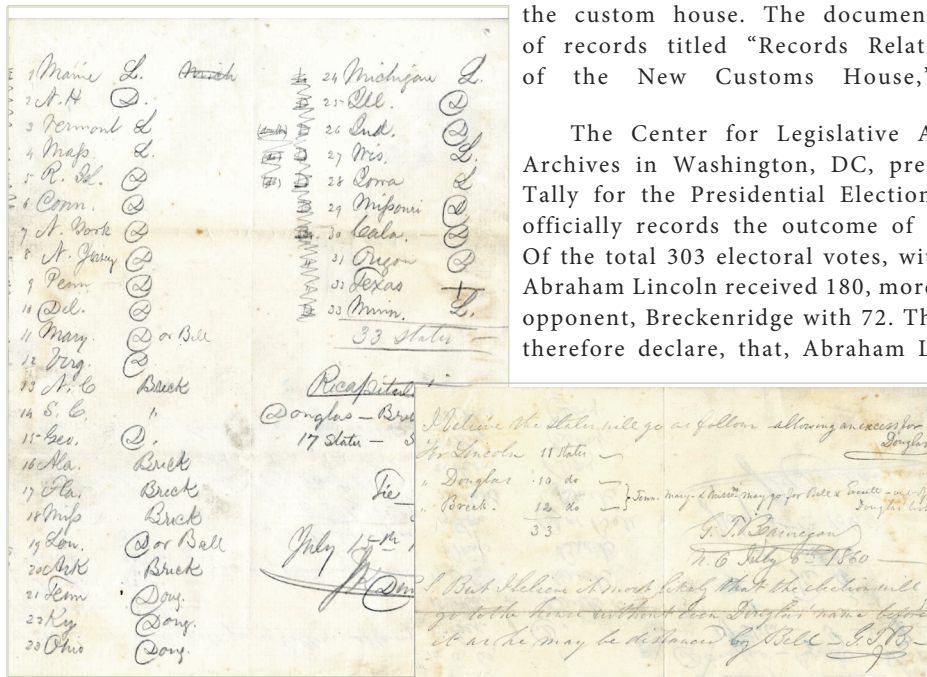 the custom house. The documen
of records titled “Records Relat
of the New Customs House,”
The Center for Legislative A
Archives in Washington, DC, pre
Tally for the Presidential Election
officially records the outcome of
Of the total 303 electoral votes, wit
Abraham Lincoln received 180, more
opponent, Breckenridge with 72. Th
therefore declare, that, Abraham L
1 Maine L. Mich
2 N. H D.
3 Vermont L
4 Mass. L.
5 R. Isl. D
6 Conn. D
7 N. York D
8 N. Jersey D
9 Penn. D
10 Del. D
11 Mary. D or Bell
12 Virg. D
13 N. C Breck
14 S. C. "
15 Geo. D.
16 Ala. Breck
17 Fla. Breck
18 Miss Breck
19 Lou. D or Bell
20 Ark Breck
21 Tenn Doug.
22 Ky Doug.
23 Ohio Doug.
24 Michigan L.
25 Ill. D
26 Ind. D
27 Wis. L.
28 Iowa L
29 Missouri D
30 Cala. D
31 Oregon D
32 Texas
33 Minn. L.
33 states
Recapitul
Douglas – Bre
17 states –
Tie
July 15th 1
Don
I believe the states will go as follows allowing an excess for
Douglas
For Lincoln 11 states
" Douglas 10 do
" Breck. 12 do
33
Tenn. Mary. & Misso. may go for Bell & Everett
Douglas
G. T.
N. O July 6th 1860
But I believe it most likely that the election will
go to the house without even Douglas' name before
it as he may be distanced by Bell G. T. B